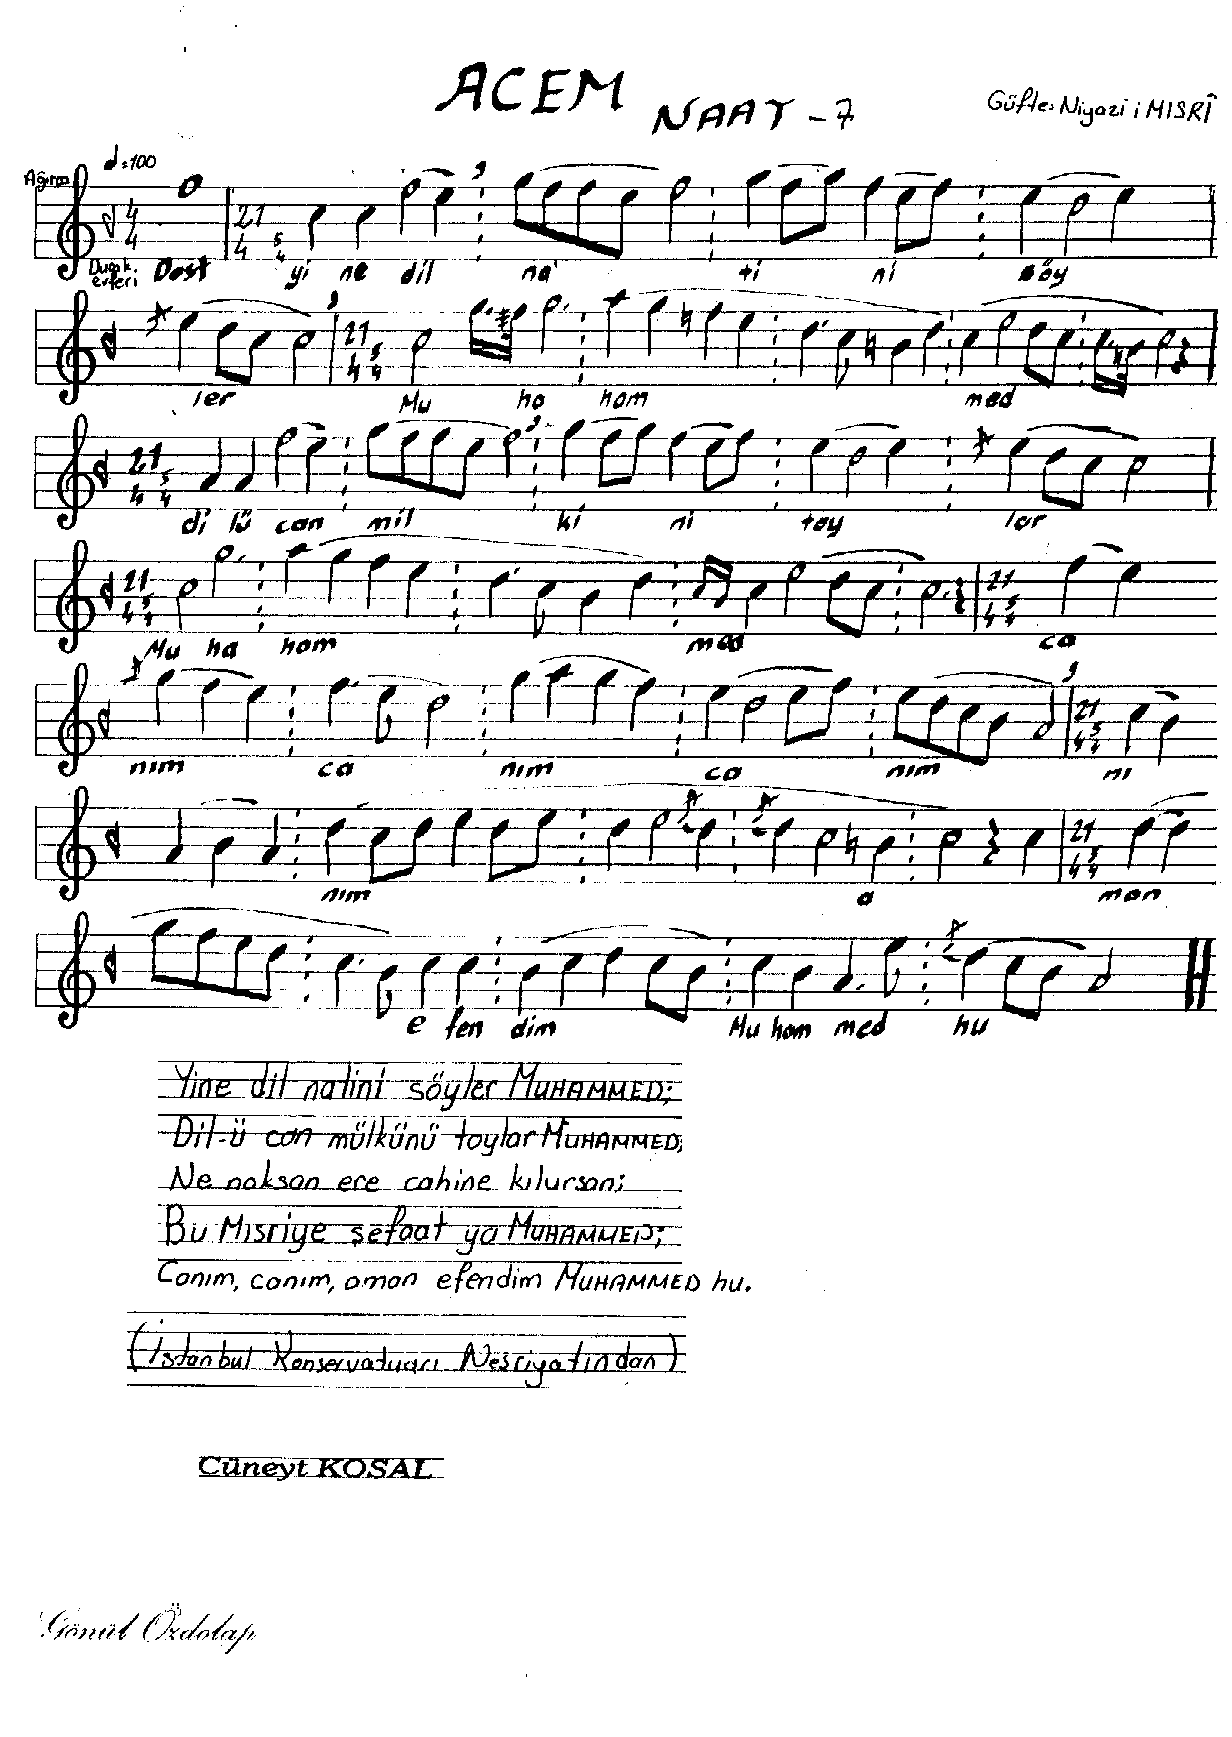 ACEM
NAAT - 7
Güfte: Niyazi i MISRÎ
=100
Ağırca
4 4 21 4 5 4
Durak evferi Dost yi ne dil na' ti ni söy
21 4 5 4
ler Mu ha ham med
21 4 5 4
di lü can mil ki ni tay lar
21 4 5 4 21 4 5 4
Mu ha ham med ca
21 4 5 4
nım ca nım ca nım ni
21 4 5 4
nım a man
e fen dim Mu ham med hu
Yine dil natini söyler MUHAMMED;
Dil-ü can mülkünü taylar MUHAMMED;
Ne noksan ere cahine kılursan;
Bu Mısriye şefaat ya MUHAMMED;
Canım, canım, aman efendim MUHAMMED hu.
(İstanbul Konservatuarı Neşriyatından)
Cüneyt KOSAL
Gönül Özdolap